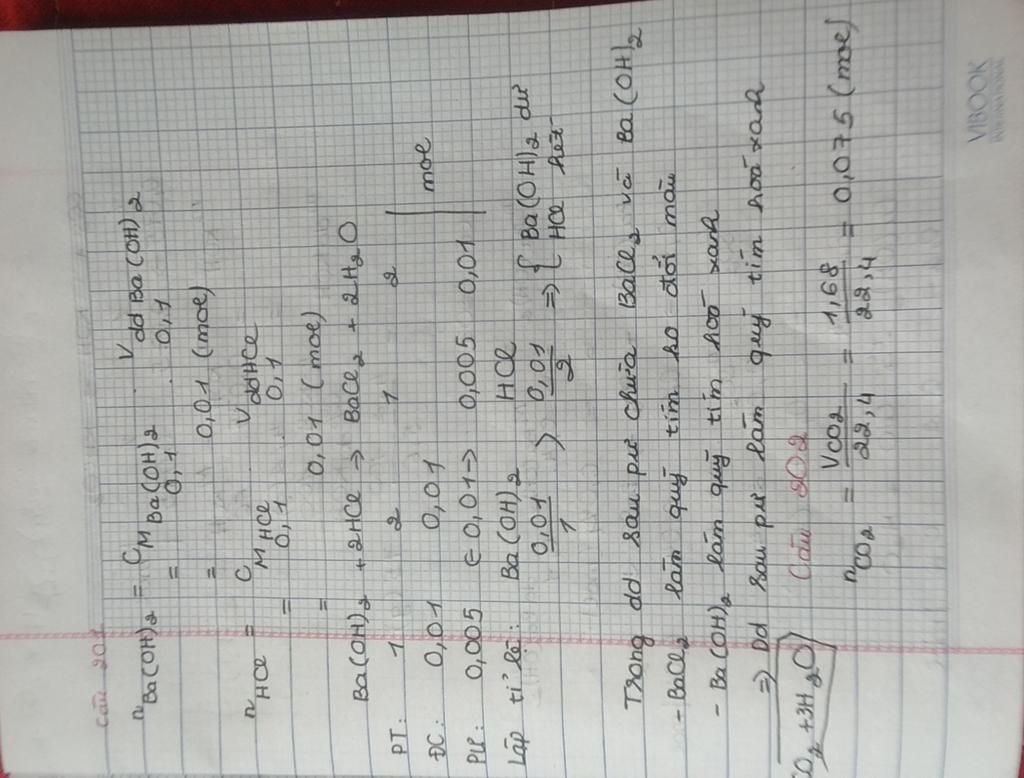 Câu 201
nBa(OH)2 = CM Ba(OH)2 . Vdd Ba(OH)2
= 0,1 . 0,1
= 0,01 (mol)
nHCl = CM HCl . Vdd HCl
= 0,1 . 0,1
= 0,01 (mol)
Ba(OH)2 + 2HCl → BaCl2 + 2H2O
PT: 1 2 1 2
ĐC: 0,01 0,01 mol
PƯ: 0,005 ← 0,01 → 0,005 0,01
Lập tỉ lệ: Ba(OH)2 HCl
0,01/1 > 0,01/2 ⇒ { Ba(OH)2 dư
HCl hết
Trong dd sau pư chứa BaCl2 và Ba(OH)2
- BaCl2 làm quỳ tím ko đổi màu
- Ba(OH)2 làm quỳ tím hoá xanh
⇒ Dd sau pư làm quỳ tím hoá xanh
Câu 202
nCO2 = VCO2/22,4 = 1,68/22,4 = 0,075 (mol)
CO2 + 3H2O
VIBOOK
INTERNATIONAL